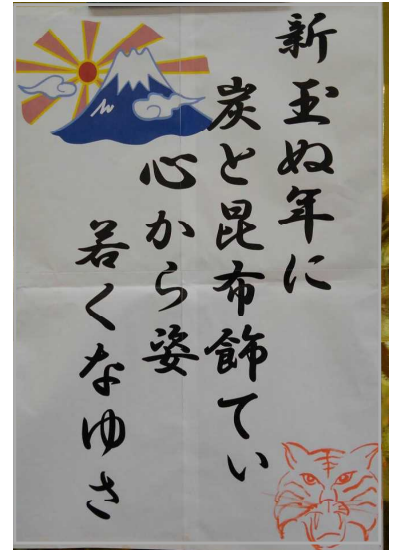 新玉ぬ年に
炭と昆布飾てぃ
心から姿
若くなゆさ